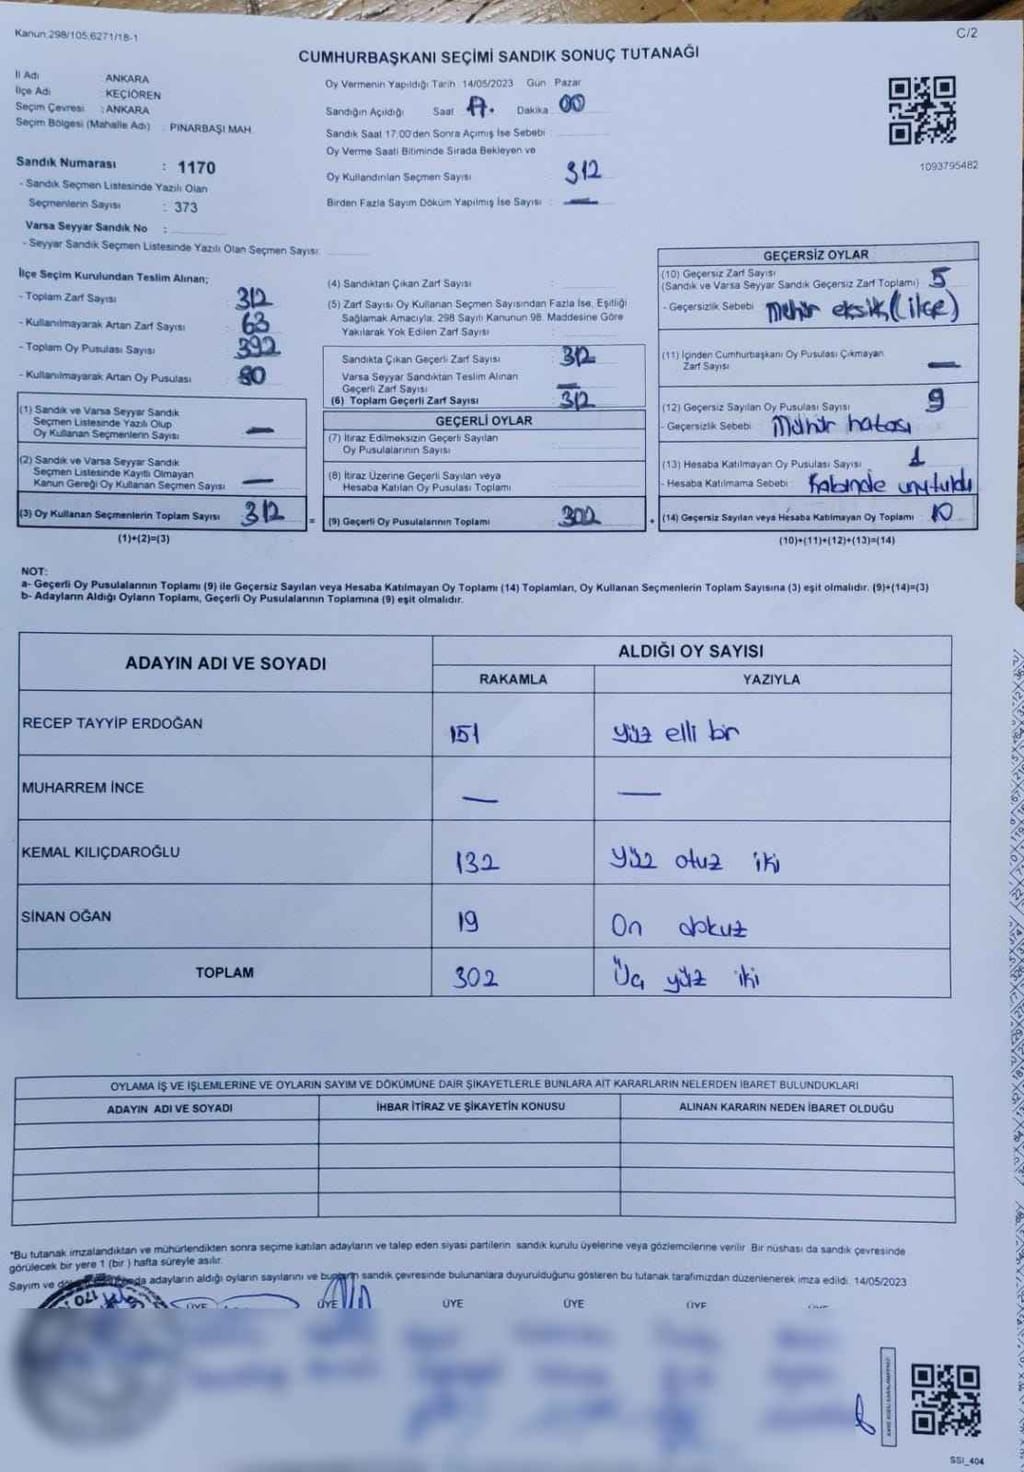 Kanun,298/105,6271/18-1
C/2
CUMHURBAŞKANI SEÇİMİ SANDIK SONUÇ TUTANAĞI
İl Adı : ANKARA
İlçe Adı : KEÇİÖREN
Seçim Çevresi : ANKARA
Seçim Bölgesi (Mahalle Adı) : PINARBAŞI MAH.
Sandık Numarası : 1170
- Sandık Seçmen Listesinde Yazılı Olan
Seçmenlerin Sayısı : 373
Varsa Seyyar Sandık No :
- Seyyar Sandık Seçmen Listesinde Yazılı Olan Seçmen Sayısı:
Oy Vermenin Yapıldığı Tarih 14/05/2023 Gün Pazar
Sandığın Açıldığı Saat 17. Dakika 00
Sandık Saat 17:00'den Sonra Açımış İse Sebebi
Oy Verme Saati Bitiminde Sırada Bekleyen ve
Oy Kullandırılan Seçmen Sayısı 312
Birden Fazla Sayım Döküm Yapılmış İse Sayısı : —
1093795482
İlçe Seçim Kurulundan Teslim Alınan;
- Toplam Zarf Sayısı 312
- Kullanılmayarak Artan Zarf Sayısı 63
- Toplam Oy Pusulası Sayısı 392
- Kullanılmayarak Artan Oy Pusulası 80
(1) Sandık ve Varsa Seyyar Sandık
Seçmen Listesinde Yazılı Olup
Oy Kullanan Seçmenlerin Sayısı —
(2) Sandık ve Varsa Seyyar Sandık
Seçmen Listesinde Kayıtlı Olmayan
Kanun Gereği Oy Kullanan Seçmen Sayısı —
(3) Oy Kullanan Seçmenlerin Toplam Sayısı 312 =
(1)+(2)=(3)
(4) Sandıktan Çıkan Zarf Sayısı :
(5) Zarf Sayısı Oy Kullanan Seçmen Sayısından Fazla İse, Eşitliği
Sağlamak Amacıyla; 298 Sayılı Kanunun 98. Maddesine Göre
Yakılarak Yok Edilen Zarf Sayısı :
Sandıkta Çıkan Geçerli Zarf Sayısı 312
Varsa Seyyar Sandıktan Teslim Alınan
Geçerli Zarf Sayısı —
(6) Toplam Geçerli Zarf Sayısı 312
GEÇERLİ OYLAR
(7) İtiraz Edilmeksizin Geçerli Sayılan
Oy Pusulalarının Sayısı
(8) İtiraz Üzerine Geçerli Sayılan veya
Hesaba Katılan Oy Pusulası Toplamı
(9) Geçerli Oy Pusulalarının Toplamı 302 +
GEÇERSİZ OYLAR
(10) Geçersiz Zarf Sayısı 5
(Sandık ve Varsa Seyyar Sandık Geçersiz Zarf Toplamı)
- Geçersizlik Sebebi Mühür eksik (ilçe)
(11) İçinden Cumhurbaşkanı Oy Pusulası Çıkmayan
Zarf Sayısı —
(12) Geçersiz Sayılan Oy Pusulası Sayısı 9
- Geçersizlik Sebebi Mühür hatası
(13) Hesaba Katılmayan Oy Pusulası Sayısı 1
- Hesaba Katılmama Sebebi : Kabinde unutuldu
(14) Geçersiz Sayılan veya Hesaba Katılmayan Oy Toplamı 10
(10)+(11)+(12)+(13)=(14)
NOT:
a- Geçerli Oy Pusulalarının Toplamı (9) ile Geçersiz Sayılan veya Hesaba Katılmayan Oy Toplamı (14) Toplamları, Oy Kullanan Seçmenlerin Toplam Sayısına (3) eşit olmalıdır. (9)+(14)=(3)
b- Adayların Aldığı Oyların Toplamı, Geçerli Oy Pusulalarının Toplamına (9) eşit olmalıdır.
ADAYIN ADI VE SOYADI
ALDIĞI OY SAYISI
RAKAMLA YAZIYLA
RECEP TAYYİP ERDOĞAN 151 yüz elli bir
MUHARREM İNCE — —
KEMAL KILIÇDAROĞLU 132 Yüz otuz iki
SİNAN OĞAN 19 On dokuz
TOPLAM 302 Üç yüz iki
OYLAMA İŞ VE İŞLEMLERİNE VE OYLARIN SAYIM VE DÖKÜMÜNE DAİR ŞİKAYETLERLE BUNLARA AİT KARARLARIN NELERDEN İBARET BULUNDUKLARI
ADAYIN ADI VE SOYADI İHBAR İTİRAZ VE ŞİKAYETİN KONUSU ALINAN KARARIN NEDEN İBARET OLDUĞU
*Bu tutanak imzalandıktan ve mühürlendikten sonra seçime katılan adayların ve talep eden siyasi partilerin sandık kurulu üyelerine veya gözlemcilerine verilir. Bir nüshası da sandık çevresinde
görülecek bir yere 1 (bir) hafta süreyle asılır.
Sayım ve adayların aldığı oyların sayılarını ve bunların sandık çevresinde bulunanlara duyurulduğunu gösteren bu tutanak tarafımızdan düzenlenerek imza edildi. 14/05/2023
ÜYE ÜYE ÜYE ÜYE ÜYE
SSI_404